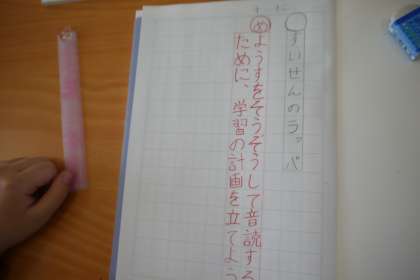 すいせんのラッパ
めようすをそうぞうして音読する
ために、学習の計画を立てよう